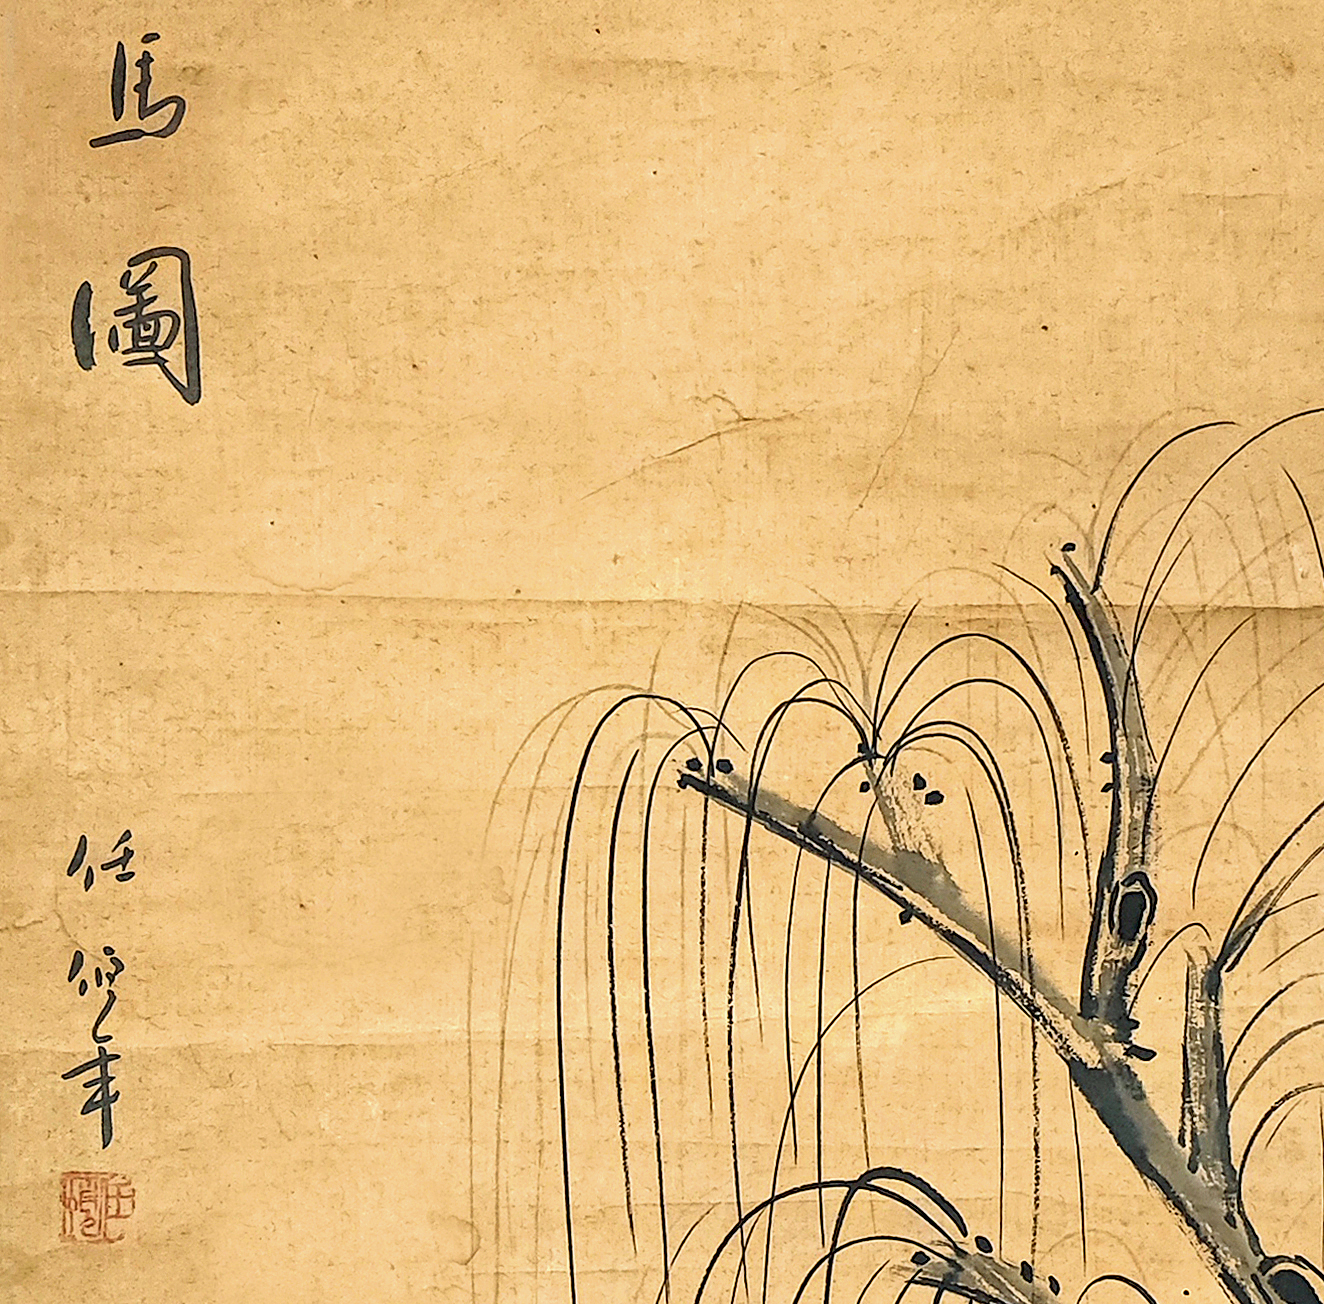 馬圖
任伯年